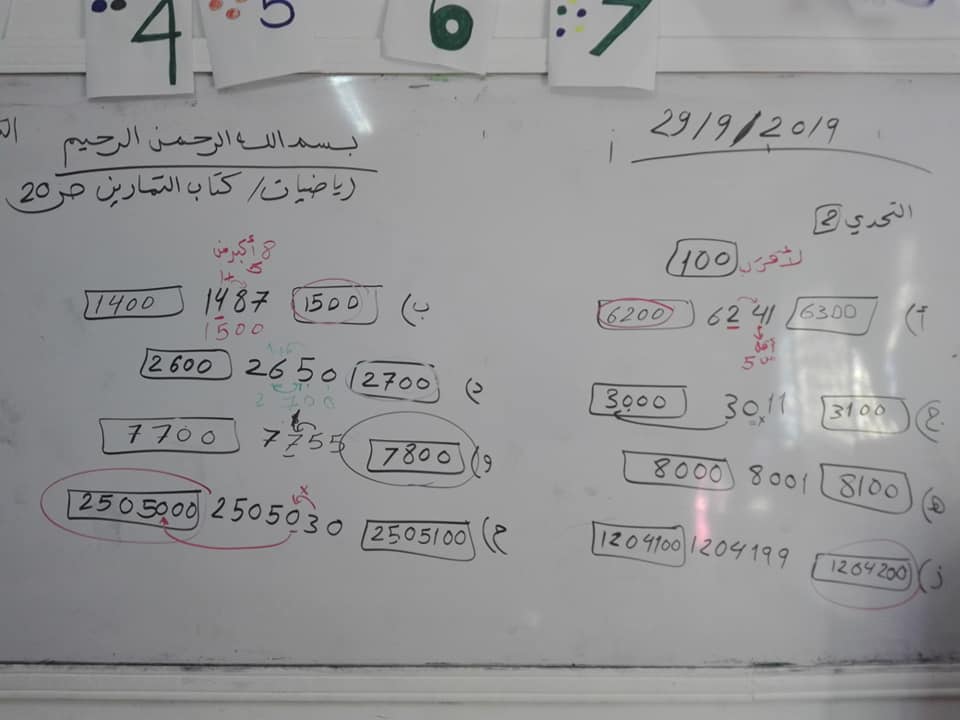 4 5 6 7
29/9/2019
أ
التحدي 2
لأقرب 100
أ) 6300 6241 6200
أقل من 5
ج) 3100 3011 3000
هـ) 8100 8001 8000
ز) 1204200 1204199 1204100
بسم الله الرحمن الرحيم
رياضيات / كتاب التمارين ص 20
8 أكبر من 5
+1
ب) 1500 1487 1400
1500
د) 2700 2650 2600
2700
و) 7800 7755 7700
ح) 2505100 2505030 2505000